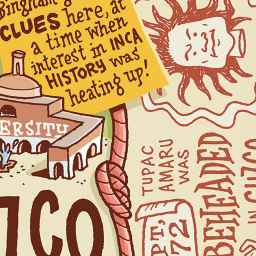 Bingham
CLUES here, at
a time when
interest in INCA
HISTORY was
heating up!
ERSITU
TUPAC
AMARU
WAS
BEHEADED
IN CUZCO
PT,
72
ZCO